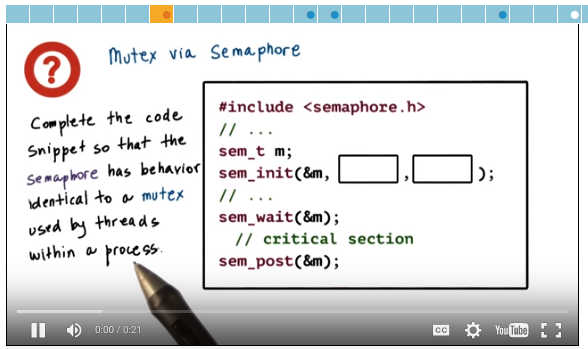 ?
Mutex via Semaphore
Complete the code
snippet so that the
semaphore has behavior
identical to a mutex
used by threads
within a process.
#include <semaphore.h>
// ...
sem_t m;
sem_init(&m, , );
// ...
sem_wait(&m);
// critical section
sem_post(&m);
0:00 / 0:21
CC
YouTube